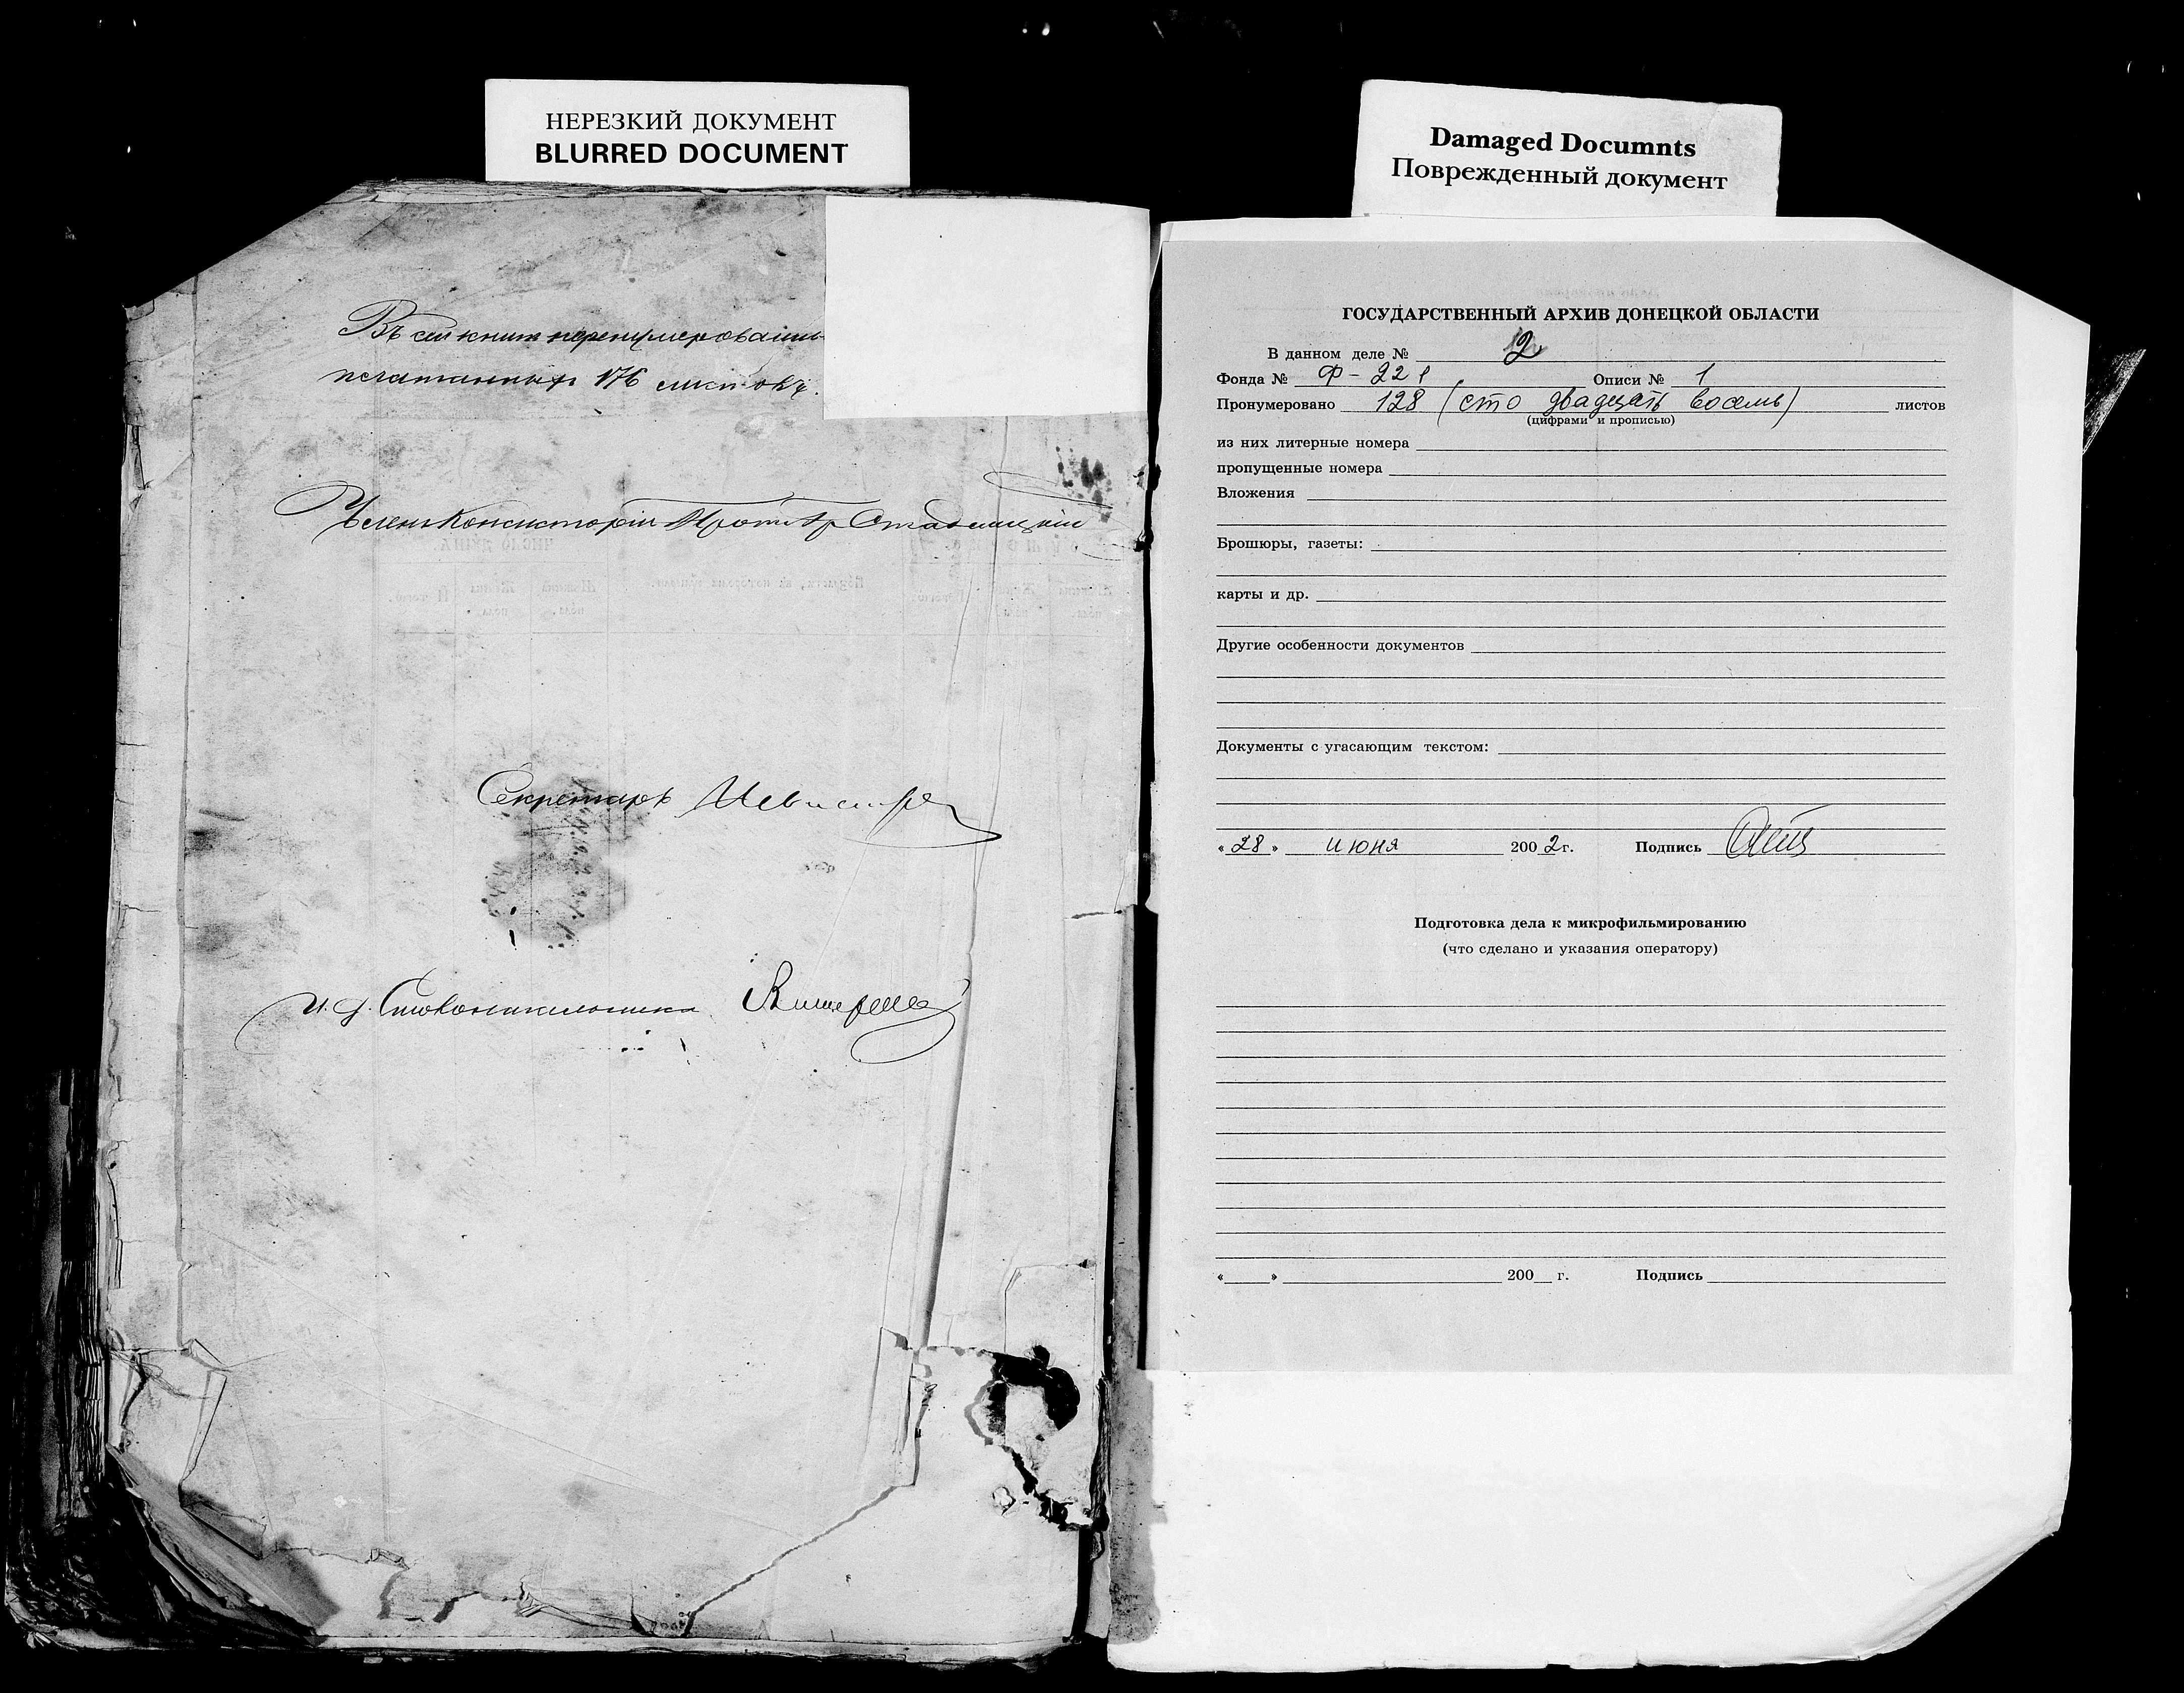 НЕРЕЗКИЙ ДОКУМЕНТ
BLURRED DOCUMENT
Въ сей книге перенумерованныхъ
печатанныхъ 176 листовъ.
Членъ Консисторіи Прот.
Секретарь
И. д. Столоначальника
Damaged Documnts
Поврежденный документ
ГОСУДАРСТВЕННЫЙ АРХИВ ДОНЕЦКОЙ ОБЛАСТИ
В данном деле № 12
Фонда № Ф-221 Описи № 1
Пронумеровано 128 (сто двадцать восемь) листов
(цифрами и прописью)
из них литерные номера
пропущенные номера
Вложения
Брошюры, газеты:
карты и др.
Другие особенности документов
Документы с угасающим текстом:
«28» июня 2002 г. Подпись
Подготовка дела к микрофильмированию
(что сделано и указания оператору)
« » 200 г. Подпись